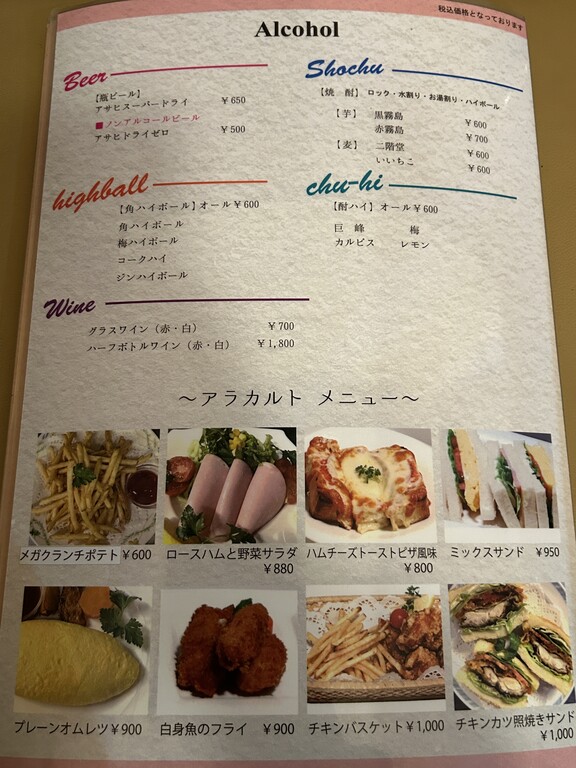 税込価格となっております
Alcohol
Beer
【瓶ビール】
アサヒスーパードライ ￥650
■ノンアルコールビール
アサヒドライゼロ ￥500
Shochu
【焼 酎】 ロック・水割り・お湯割り・ハイボール
【芋】 黒霧島 ￥600
赤霧島 ￥700
【麦】 二階堂 ￥600
いいちこ ￥600
highball
【角ハイボール】オール￥600
角ハイボール
梅ハイボール
コークハイ
ジンハイボール
chu-hi
【酎ハイ】オール￥600
巨峰 梅
カルピス レモン
Wine
グラスワイン（赤・白） ￥700
ハーフボトルワイン（赤・白） ￥1,800
～アラカルト メニュー～
メガクランチポテト ￥600
ロースハムと野菜サラダ
￥880
ハムチーズトーストピザ風味
￥800
ミックスサンド ￥950
プレーンオムレツ￥900
白身魚のフライ ￥900
チキンバスケット￥1,000
チキンカツ照焼きサンド
￥1,000